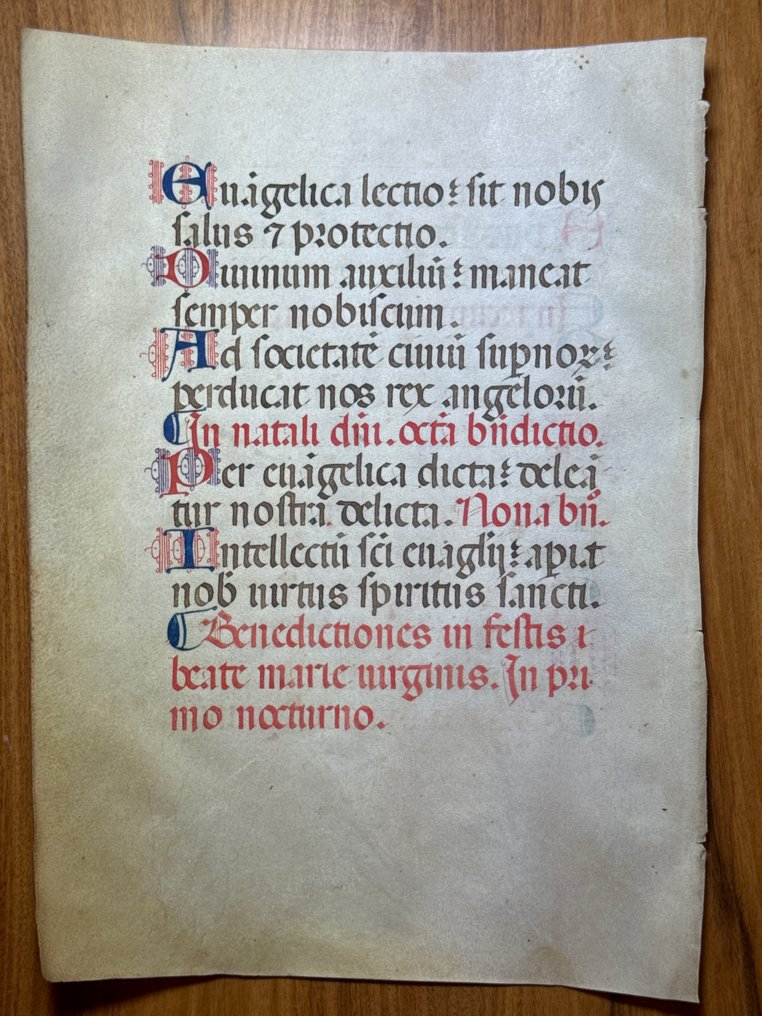 Euāgelica lectio: sit nobis
salus ⁊ protectio.
Diuinum auxiliū: maneat
semper nobiscum.
Ad societatē ciuiū suꝑnoꝝ:
perducat nos rex angeloꝝ.
In natali dn̄i. octā bn̄dictio.
Per euāgelica dicta: deleā
tur nostra delicta. Nona bn̄.
Intellectū sc̄i euāglij: aꝑiat
nob̄ uirtus spiritus sancti.
Benedictiones in festis ī
beate marie uirginis. In pri
mo nocturno.